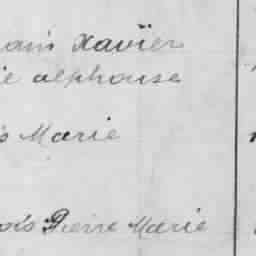 ain Xavier
ie alphonse
s Marie
ois Pierre Marie